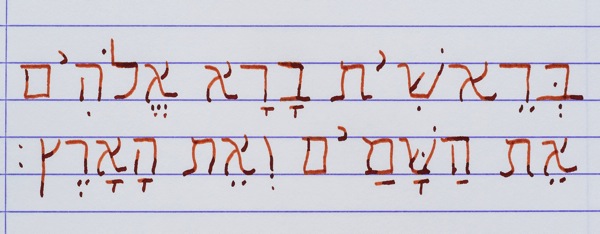 בְּרֵאשִׁית בָּרָא אֱלֹהִים
אֵת הַשָּׁמַים וְאֵת הָאָרֶץ׃